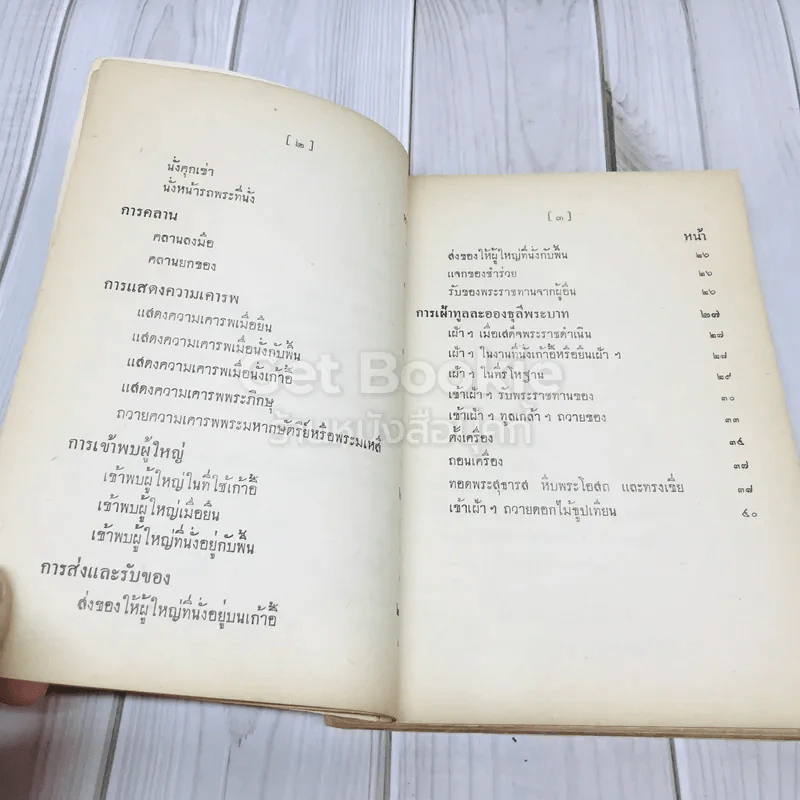 [ ๒ ]
นั่งคุกเข่า
นั่งหน้ารถพระที่นั่ง
การคลาน
คลานลงมือ
คลานยกของ
การแสดงความเคารพ
แสดงความเคารพเมื่อยืน
แสดงความเคารพเมื่อนั่งกับพื้น
แสดงความเคารพเมื่อนั่งเก้าอี้
แสดงความเคารพพระภิกษุ
ถวายความเคารพพระมหากษัตริย์หรือพระมเหสี
การเข้าพบผู้ใหญ่
เข้าพบผู้ใหญ่ในที่ใช้เก้าอี้
เข้าพบผู้ใหญ่เมื่อยืน
เข้าพบผู้ใหญ่ที่นั่งอยู่กับพื้น
การส่งและรับของ
ส่งของให้ผู้ใหญ่ที่นั่งอยู่บนเก้าอี้
[ ๓ ]
หน้า
ส่งของให้ผู้ใหญ่ที่นั่งกับพื้น ๒๖
แจกของชำร่วย ๒๖
รับของพระราชทานจากผู้อื่น ๒๖
การเฝ้าทูลละอองธุลีพระบาท ๒๗
เฝ้า ฯ เมื่อเสด็จพระราชดำเนิน ๒๗
เฝ้า ฯ ในงานที่นั่งเก้าอี้หรือยืนเฝ้า ฯ ๒๗
เฝ้า ฯ ในที่รโหฐาน ๒๙
เข้าเฝ้า ฯ รับพระราชทานของ ๓๐
เข้าเฝ้า ฯ ทูลเกล้า ฯ ถวายของ ๓๓
ตั้งเครื่อง ๓๕
ถอนเครื่อง ๓๗
ทอดพระสุธารส หีบพระโอสถ และทรงเซ็น ๓๗
เข้าเฝ้า ฯ ถวายดอกไม้ธูปเทียน ๔๐
Get Bookie